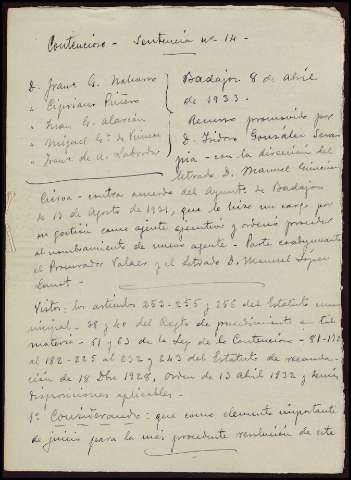 Contencioso - Sentencia nº 14 -
D. Franc G. Navarro
" Cipriano Piñero
" Juan G. Alarcón
" Miguel Gª de
" Franc de A. Labrador
Badajoz 8 de abril
de 1933.
Recurso promovido por
D. Isidro González Sera
pia - con la dirección del
letrado D. Manuel Giménez
Cierva - contra acuerdo del Ayunto de Badajoz
de 13 de Agosto de 1931, que le hizo un cargo por
su gestión como agente ejecutivo y ordenó proceder
al nombramiento de nuevo agente - Parte coadyuvante
el Procurador Valaer y el letrado D. Manuel López
Vistos: los artículos 253-255 y 256 del Estatuto mu
nicipal - 38 y 40 del Regto de procedimiento en tal
materia - 51 y 63 de la Ley de lo Contencioso - 81-
al 182-225 al 232 y 243 del Estatuto de recauda-
ción de 18 Dbre 1928, orden de 13 abril 1932 y demás
disposiciones aplicables -
1º Considerando: que como elemento importante
de juicio para la más procedente resolución de este